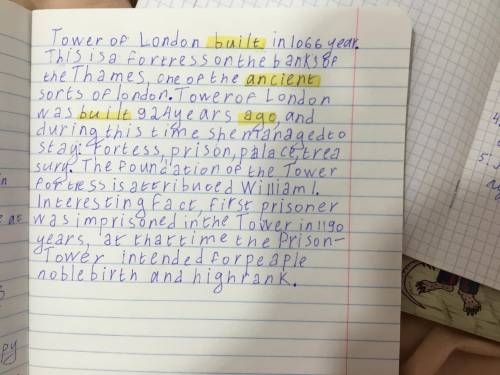 Tower of London built in 1066 year.
This is a fortress on the banks of
the Thames, one of the ancient
sorts of london. Tower of London
was built 924 years ago, and
during this time she managed to
stay: fortess, prison, palace, trea
sury. The foundation of the Tower
fortress is attribuced William I.
Interesting fact, first prisoner
was imprisoned in the Tower in 1190
years, at that time the Prison-
Tower intended for peaple
noble birth and high rank.